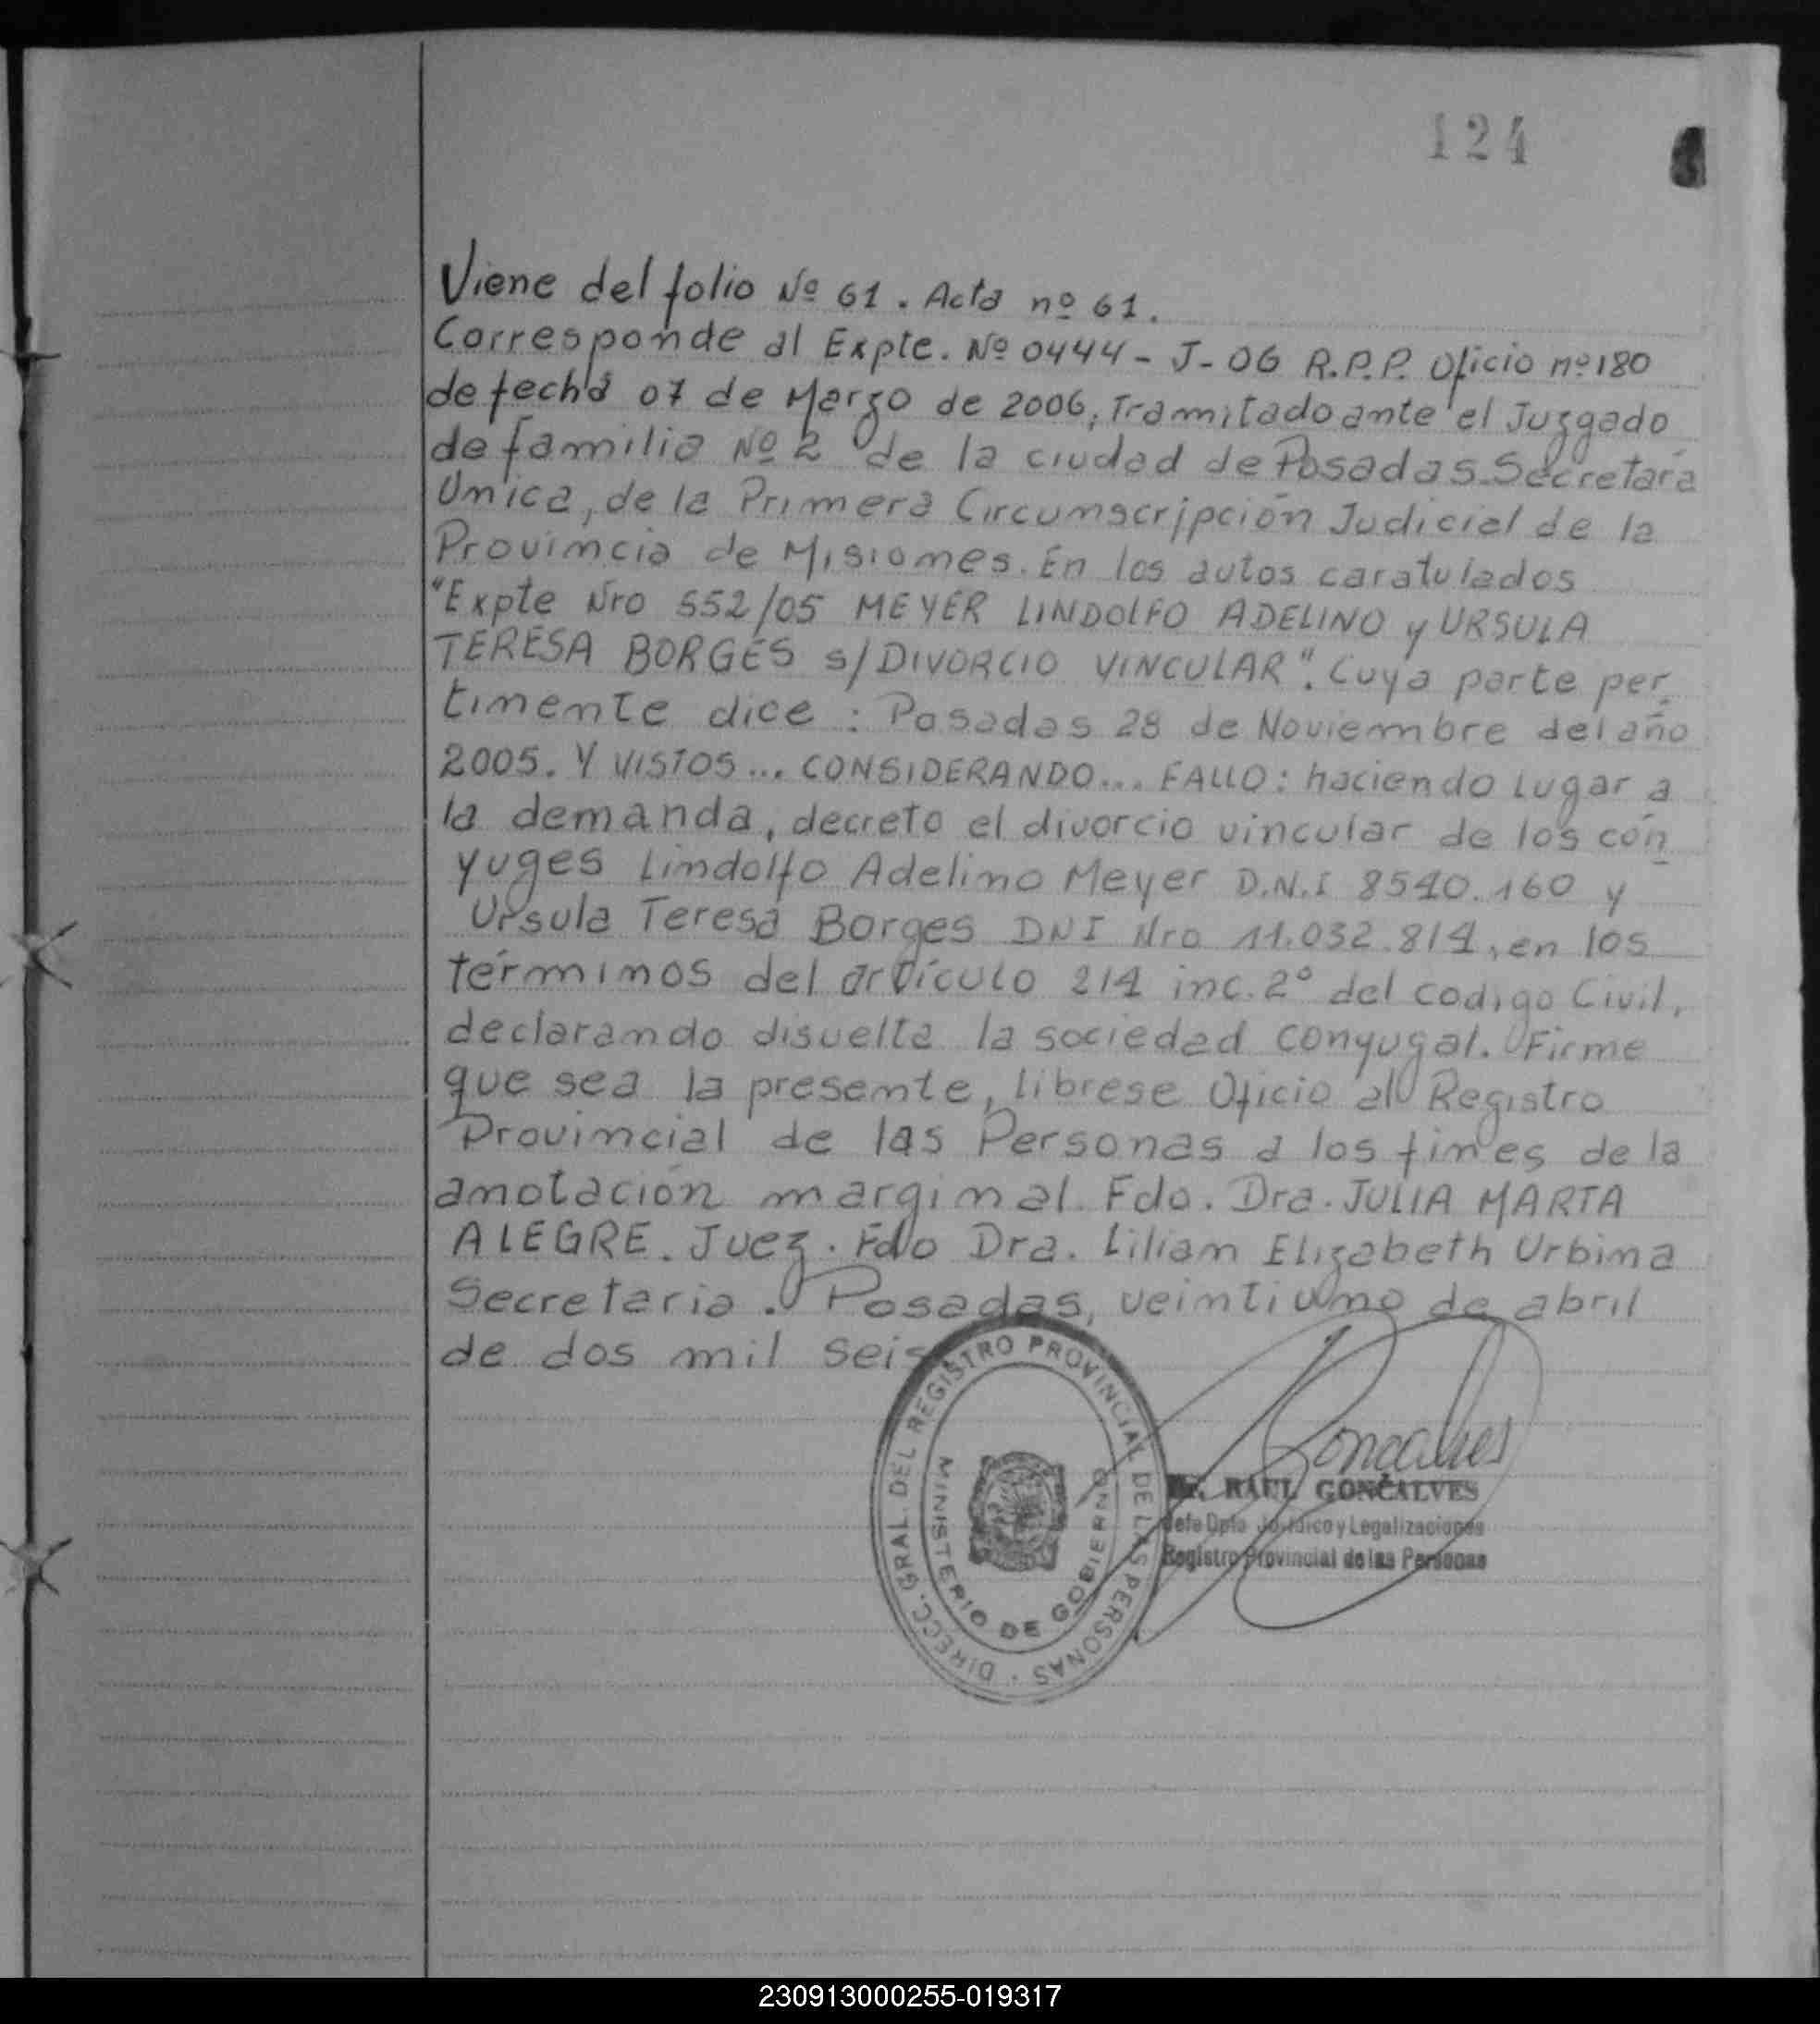 124
Viene del folio Nº 61. Acta nº 61.
Corresponde al Expte. Nº 0444 - J - 06 R.P.P. Oficio nº 180
de fecha 07 de Marzo de 2006, Tramitado ante el Juzgado
de familia Nº 2 de la ciudad de Posadas. Secretaría
Unica, de la Primera Circunscripción Judicial de la
Provincia de Misiones. En los autos caratulados
"Expte Nro 552/05 MEYER LINDOLFO ADELINO y URSULA
TERESA BORGES s/ DIVORCIO VINCULAR". Cuya parte per
tinente dice: Posadas 28 de Noviembre del año
2005. Y VISTOS... CONSIDERANDO... FALLO: haciendo lugar a
la demanda, decreto el divorcio vincular de los cón
yuges Lindolfo Adelino Meyer D.N.I 8540.160 y
Ursula Teresa Borges DNI Nro 11.032.814, en los
términos del artículo 214 inc. 2º del codigo Civil,
declarando disuelta la sociedad conyugal. Firme
que sea la presente, librese Oficio al Registro
Provincial de las Personas a los fines de la
anotación marginal. Fdo. Dra. JULIA MARTA
ALEGRE. Juez. Fdo Dra. Liliam Elizabeth Urbina
Secretaria. Posadas, veintiuno de abril
de dos mil seis
DIRECC. GRAL. DEL REGISTRO PROVINCIAL DE LAS PERSONAS
MINISTERIO DE GOBIERNO
Goncalves
Dr. RAUL GONCALVES
Jefe Dpto Jurídico y Legalizaciones
Registro Provincial de las Personas
230913000255-019317